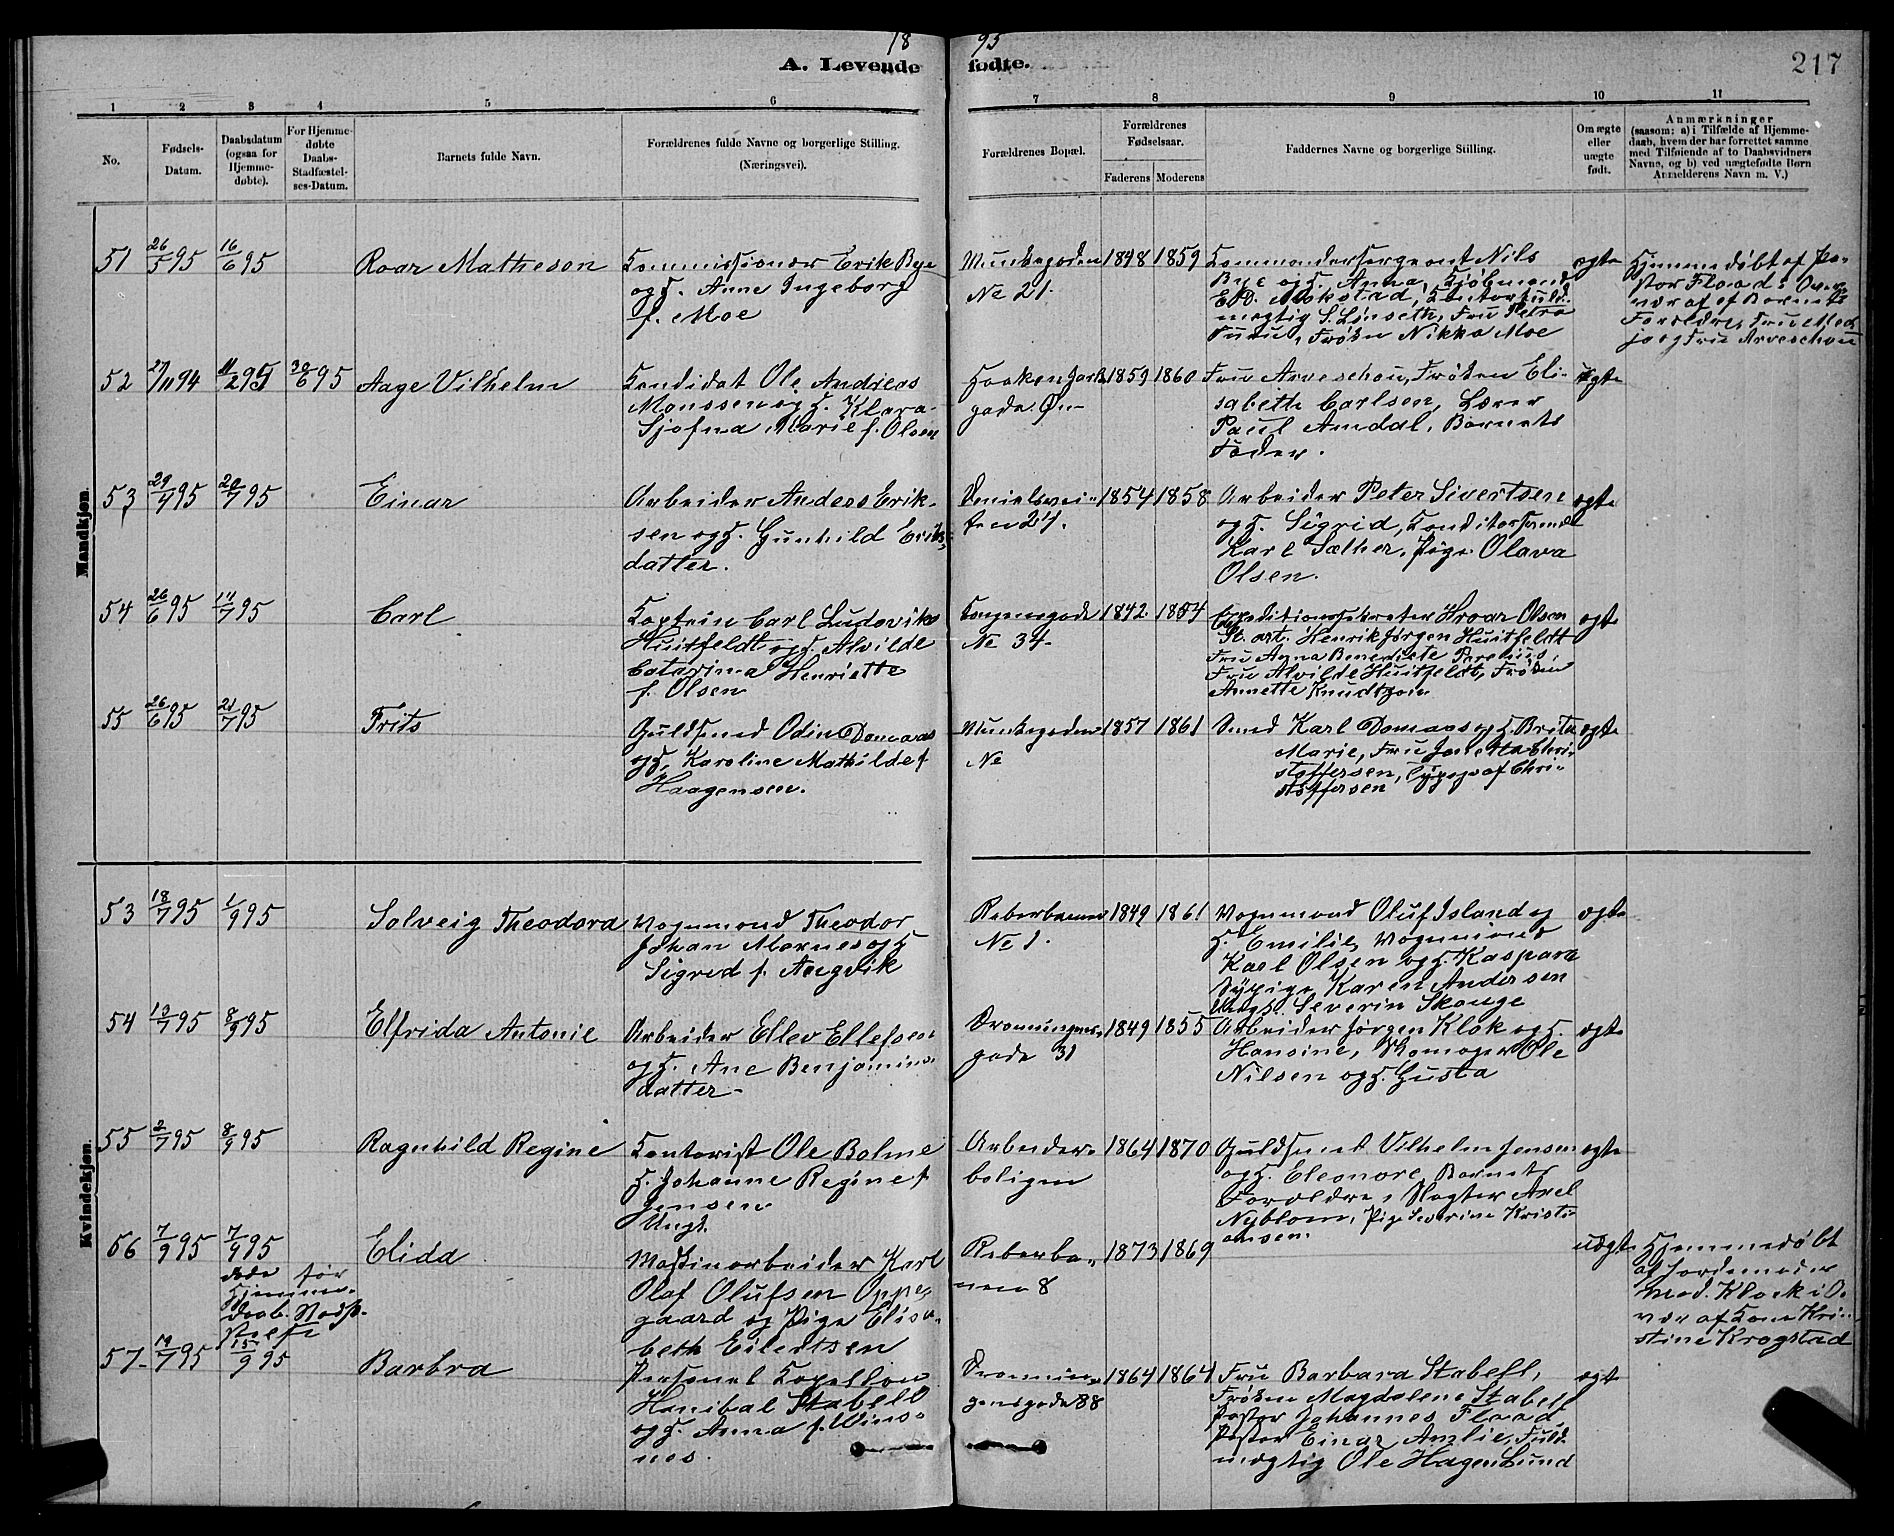 18 95
A. Levende fødte.
217
1 2 3 4 5 6 7 8 9 10 11
No.
Fødsels-Datum.
Daabsdatum (ogsaa for Hjemme-døbte).
For Hjemme-døbte Daabs-Stadfæstel-ses-Datum.
Barnets fulde Navn.
Forældrenes fulde Navne og borgerlige Stilling.
(Næringsvei).
Forældrenes Bopæl.
Forældrenes Fødselsaar.
Faderens Moderens
Faddernes Navne og borgerlige Stilling.
Om ægte eller uægte født.
Anmærkninger
(saasom: a) i Tilfælde af Hjemme-
daab, hvem der har forrettet samme
med Tilføiende af to Daabsvidners
Navne, og b) ved uægtefødte Børn
Anmelderens Navn m. V.)
Mandkjøn.
51 26/5 95 16/6 95 Roar Matheson
Kommissionær Erik Bye
og H. Anne Ingeborg
f. Moe
Munkegaden
No 21.
1848 1859
Kommandersergeant Nils
Bye og H. Anna, Kjøbmand
Mokstad, Kontorfuld-
mægtig S. Lønseth, Fru Petra
Frøken Nikka Moe
ægte
Hjemmedøbt af Pa-
stor Flood i Over-
vær af Barnets
Forældre, Fru
og Fru Arveschou
52 27/11 94 11/2 95 30/6 95 Aage Vilhelm
Kandidat Ole Andreas
Monssen og H. Klara
Sjofna Marie f. Olsen
Haakon Jarls
gade
1859 1860
Fru Arveschou, Frøken Eli-
sabeth Carlsen, Lærer
Paul Amdal, Barnets
Fader.
ægte
53 29/4 95 20/7 95 Einar
Arbeider Anders Erik-
sen og H. Gunhild Eriks-
datter.
Danielsvei-
ten 24.
1854 1858
Arbeider Peter Sivertsen
og H. Sigrid, Konditorsvend
Karl Sæther, Pige Olava
Olsen.
ægte
54 26/6 95 11/7 95 Carl
Kaptein Carl Ludoviks
Huitfeldt og H. Alvilde
Catarina Henriette
f. Olsen
Kongensgade
No 34.
1842. 1854
Expeditionssekretær Hroar Olsen
St. art. Henrik Jørgen Huitfeldt
Fru Anna Benedicte
Fru Alvilde Huitfeldt, Frøken
Annette Knudtzon
ægte
55 26/6 95 21/7 95 Frits
Guldsmed Odin Domaas
og H. Karoline Mathilde f
Haagensen.
Munkegaden
No
1857 1861
Smed Karl Domaas og H. Brita
Marie, Fru Janetta Chri-
stoffersen, Chri-
stoffersen
ægte
Kvindekjøn.
53 18/7 95 1/9 95 Solveig Theodora
Vognmand Theodor
Johan Marnes og H
Sigrid f. Angvik
Reberbanen
No 1.
1849 1861
Vognmand Oluf Island og
H. Emilie, Vognmand
Karl Olsen og H. Kaspara
Sypige Karen Andersen
Severin Skauge
ægte
54 13/7 95 8/9 95 Elfrida Antonie
Arbeider Ellev Ellefsen
og H. Ane Benjamins-
datter-
Dronningens-
gade 31
1849 1855
Arbeider Jørgen Klok og H.
Hansine, Skomager Ole
Nilsen og H. Gusta
ægte
55 2/7 95 8/9 95 Ragnhild Regine
Kontorist Ole Bolme
H. Johanne Regine f
Jensen
Arbeider-
boligen
1864 1870
Guldsmed Vilhelm Jensen
og H. Eleonore Barnets
Forældre, Slagter Axel
Nyblom, Pige Severine Kristi-
ansen.
ægte
56 7/9 95 7/9 95 Elida
døde før
Hjemme-
daab. Stadf-
Ungk.
Maskinarbeider Karl
Olaf Olufsen Oppe-
gaard og Pige Elisa-
beth Eilertsen
Reberba-
nen 8
1873 1869
uægte
Hjemmedøbt
af Jordemoder
Mad. Klock i O-
vær af Kone Kri-
stine Krogstad
57- 19/7 95 15/9 95 Barbra
Personel Kapellan
Hanibal Stabell
og H. Anna f. Wins-
nes.
Dronnin-
gensgade 38
1864 1864
Fru Barbara Stabell,
Frøken Magdalene Stabell
Pastor Johannes Flood,
Pastor Einar Amlie, Fuld-
mægtig Ole Hagen Lund
ægte